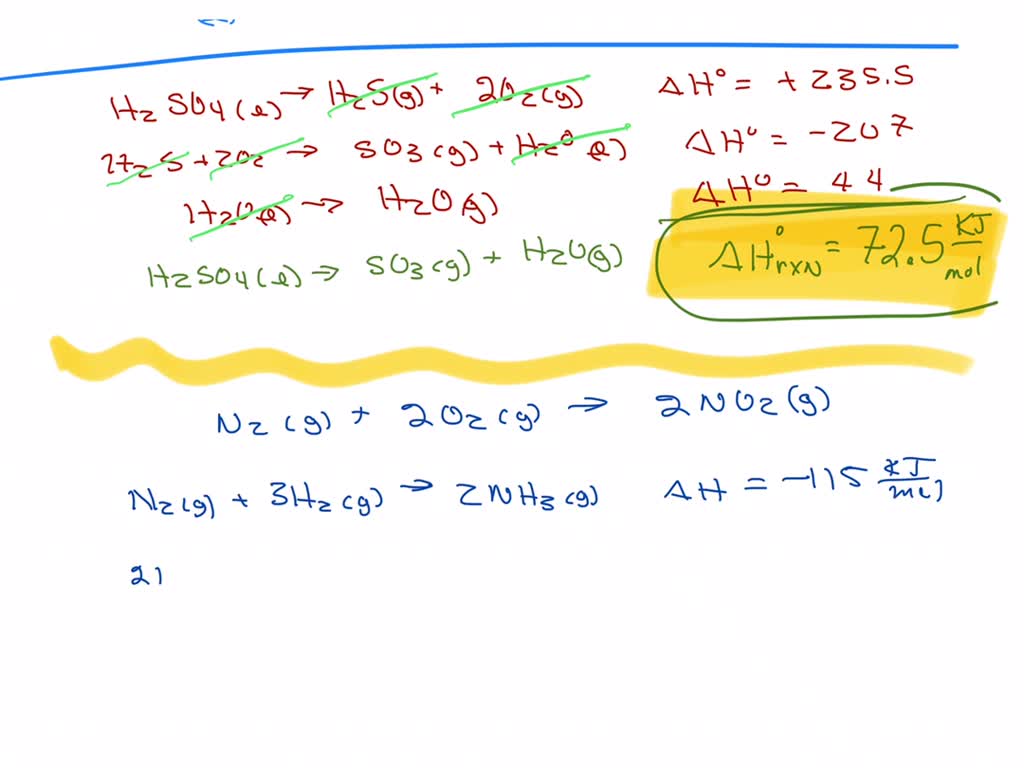 H2SO4(l) → H2S(g) + 2O2(g) ΔH° = +235.5
H2S + 2O2 → SO3(g) + H2O(l) ΔH° = -207
H2O(l) → H2O(g) ΔH° = 44
H2SO4(l) → SO3(g) + H2O(g) ΔH°rxn = 72.5 kJ/mol
N2(g) + 2O2(g) → 2NO2(g)
N2(g) + 3H2(g) → 2NH3(g) ΔH = -115 kJ/mol
21